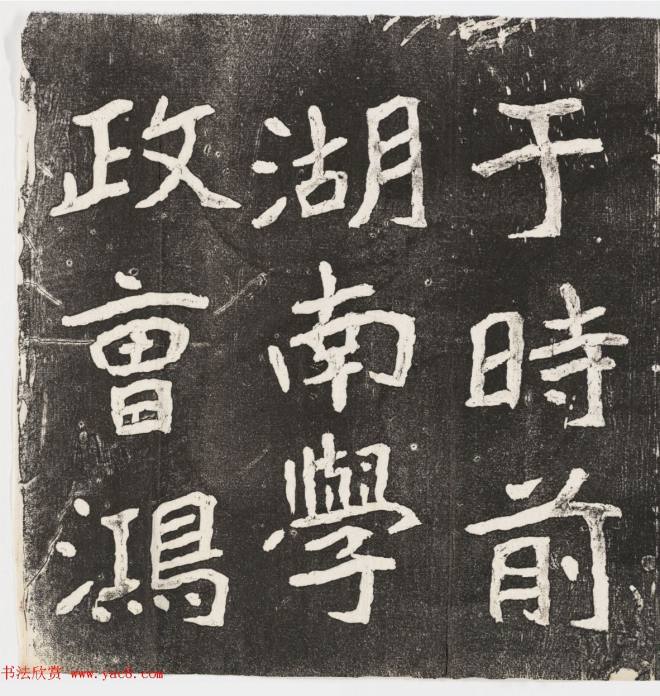 于時前
湖南學
政曹鴻
书法欣赏 www.yac8.com